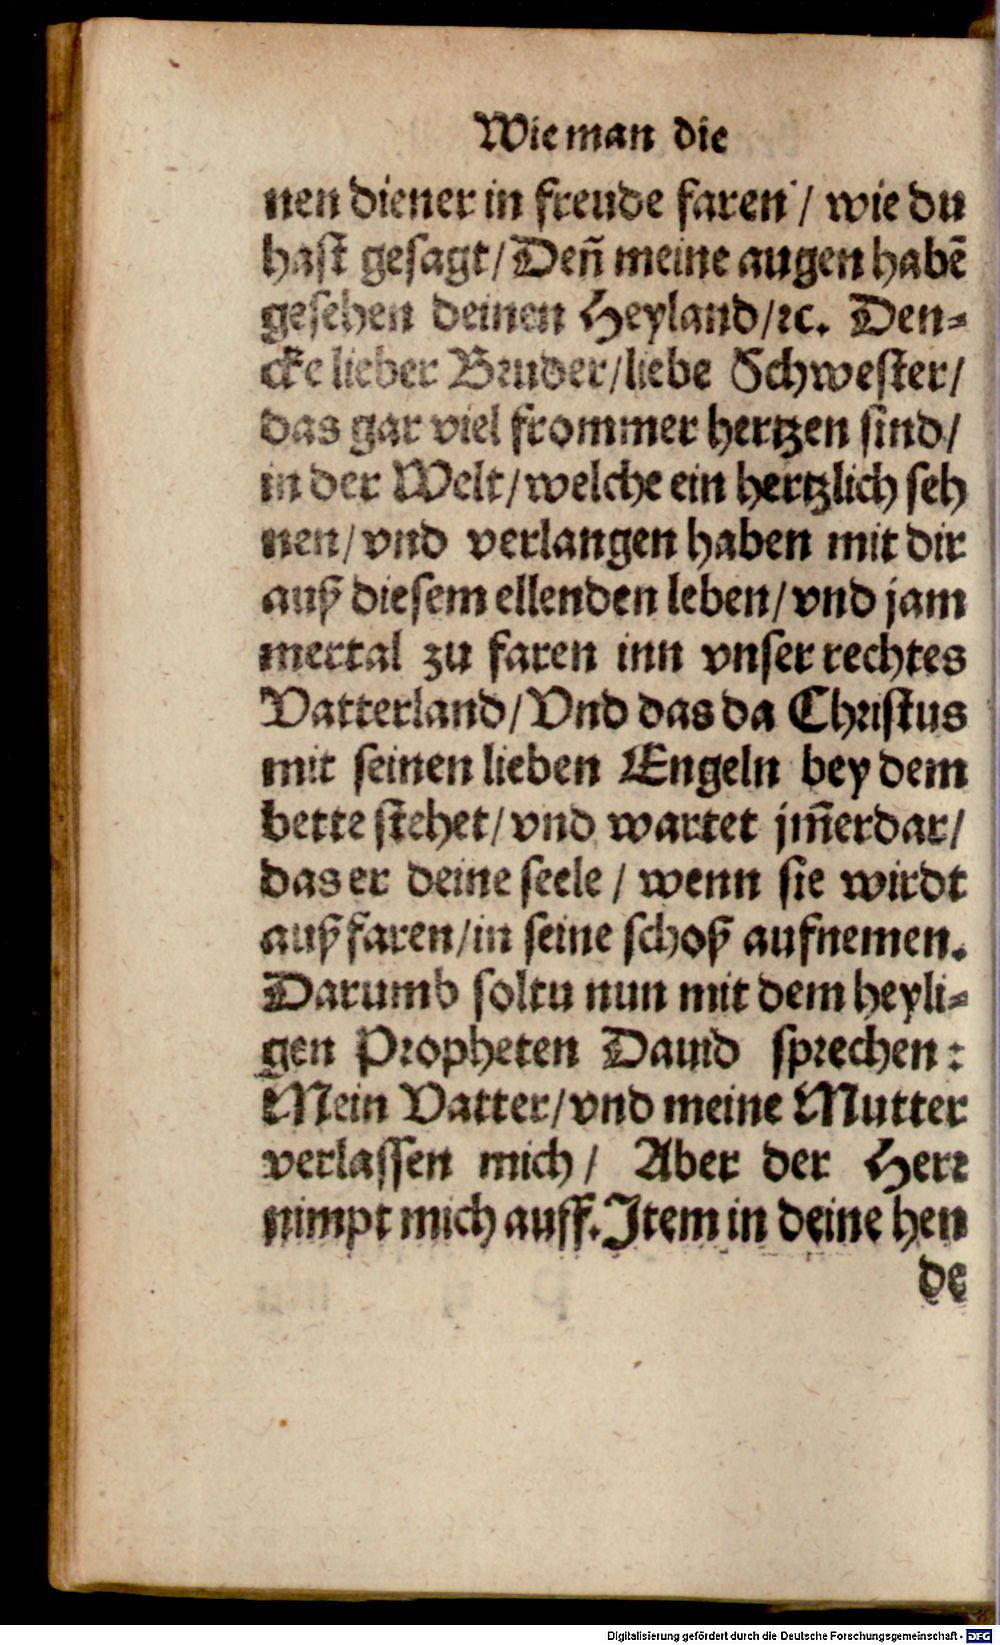 Wie man die
nen diener in freude faren / wie du
hast gesagt / Deñ meine augen habē
gesehen deinen Heyland / ꝛc. Den⸗
cke lieber Bruder / liebe Schwester /
das gar viel frommer hertzen sind /
in der Welt / welche ein hertzlich seh
nen / vnd verlangen haben mit dir
auß diesem ellenden leben / vnd jam
mertal zu faren inn vnser rechtes
Vatterland / Vnd das da Christus
mit seinen lieben Engeln bey dem
bette stehet / vnd wartet jm̃erdar /
das er deine seele / wenn sie wirdt
außfaren / in seine schoß aufnemen.
Darumb soltu nun mit dem heyli⸗
gen Propheten Dauid sprechen :
Mein Vatter / vnd meine Mutter
verlassen mich / Aber der Herr
nimpt mich auff. Item in deine hen
de
Digitalisierung gefördert durch die Deutsche Forschungsgemeinschaft - DFG